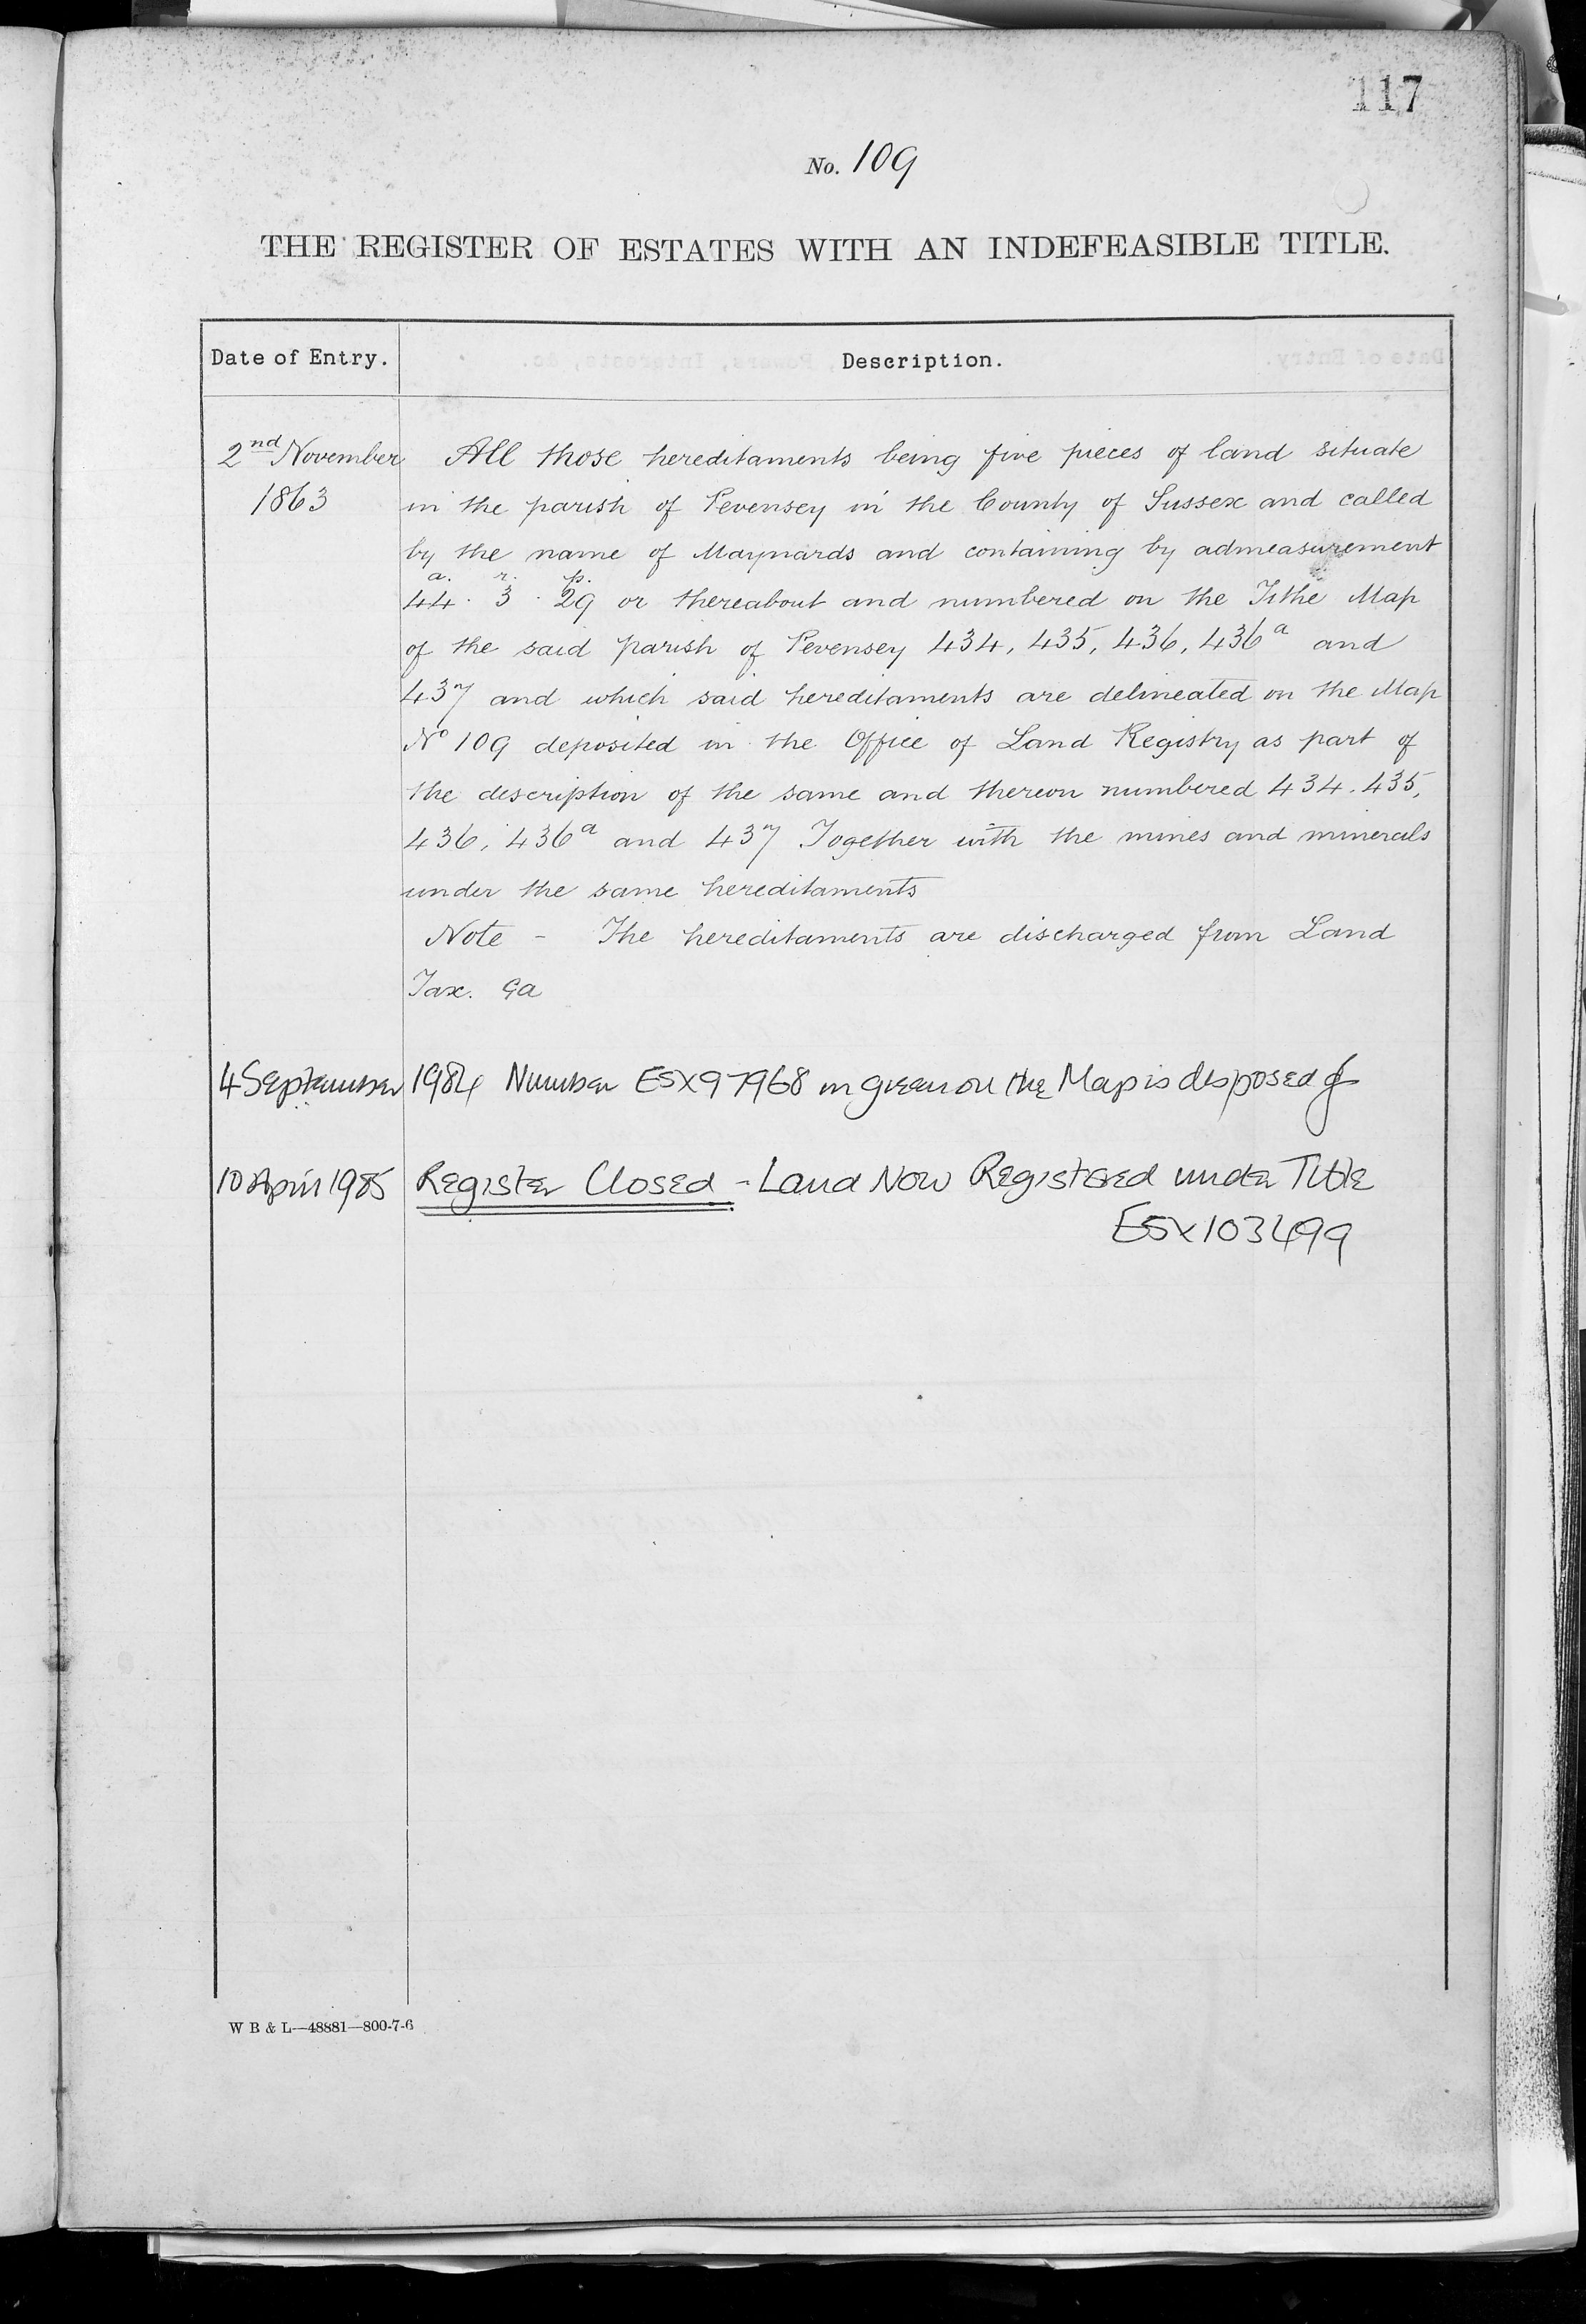 117
No. 109
THE REGISTER OF ESTATES WITH AN INDEFEASIBLE TITLE.
Date of Entry. Description.
2nd November 1863
All those hereditaments being five pieces of land situate
in the parish of Pevensey in the County of Sussex and called
by the name of Maynards and containing by admeasurement
a. r. p.
44. 3. 29 or thereabout and numbered on the Tithe Map
of the said parish of Pevensey 434, 435, 436, 436a and
437 and which said hereditaments are delineated on the Map
No 109 deposited in the Office of Land Registry as part of
the description of the same and thereon numbered 434. 435,
436, 436a and 437 Together with the mines and minerals
under the same hereditaments
Note - The hereditaments are discharged from Land
Tax.
4 September 1984 Number ESX97968 in green on the Map is disposed of
10 April 1985 Register Closed - Land Now Registered under Title
ESX103499
W B & L—48881—800-7-6